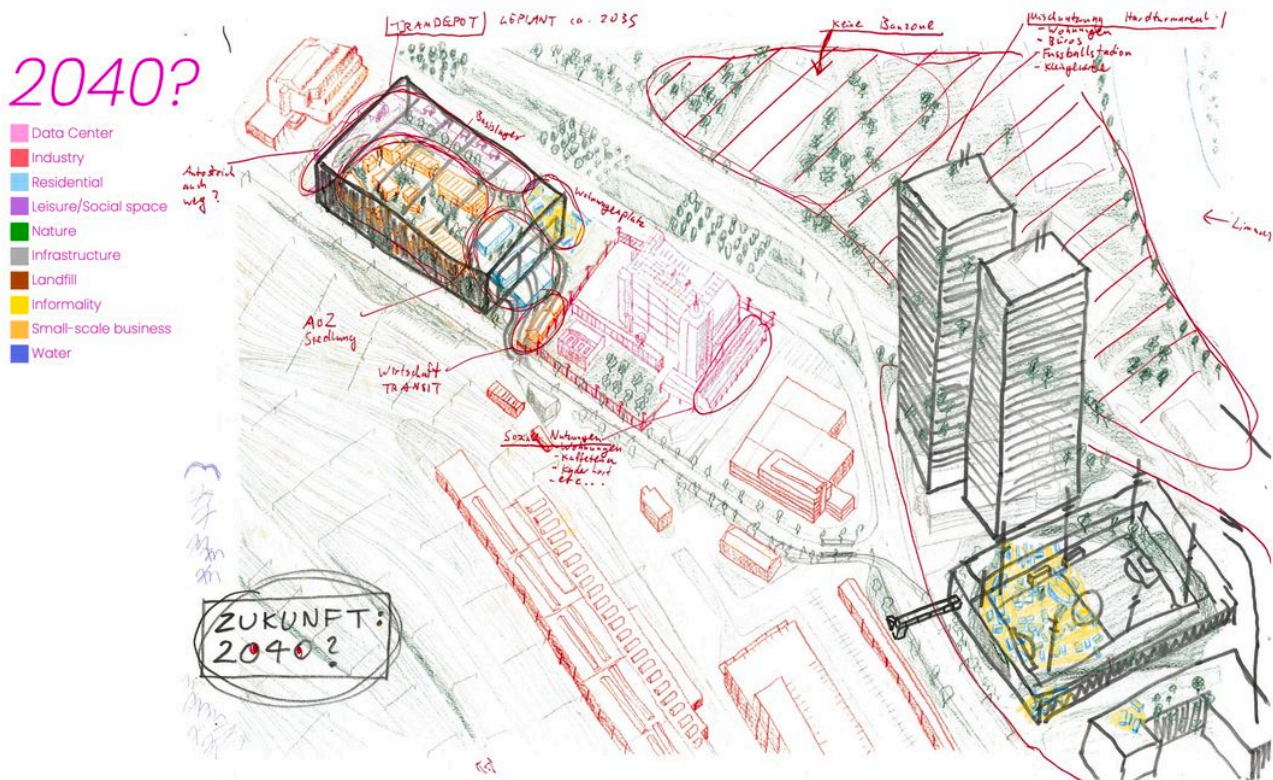 2040?
Data Center
Industry
Residential
Leisure/Social space
Nature
Infrastructure
Landfill
Informality
Small-scale business
Water
TRAMDEPOT GEPLANT ca. 2035
Keine Bauzone
Mischnutzung Hardturmareal:
- Wohnungen
- Büros
- Fussballstadion
Basislager
Autostrich
auch
weg?
Wohnwagenplatz
← Limmat
AOZ
Siedlung
Wirtschaft
TRANSIT
Soziale Nutzungen
- Wohnungen
- etc...
ZUKUNFT:
2040?